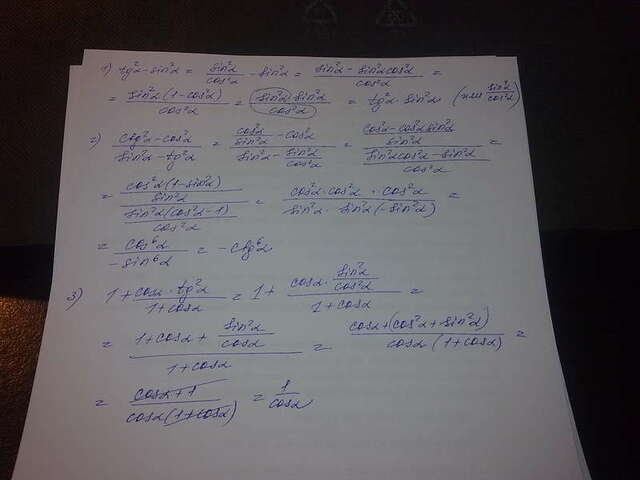 1) tg²α - sin²α = sin²α/cos²α - sin²α = (sin²α - sin²α cos²α)/cos²α =
= sin²α(1 - cos²α)/cos²α = sin²α · sin²α/cos²α = tg²α · sin²α (или sin⁴α/cos²α)
2) (ctg²α - cos²α)/(sin²α - tg²α) = (cos²α/sin²α - cos²α)/(sin²α - sin²α/cos²α) = ((cos²α - cos²α sin²α)/sin²α)/((sin²α cos²α - sin²α)/cos²α) =
= (cos²α(1 - sin²α)/sin²α)/(sin²α(cos²α - 1)/cos²α) = (cos²α · cos²α · cos²α)/(sin²α · sin²α(-sin²α)) =
= cos⁶α/(-sin⁶α) = -ctg⁶α
3) 1 + (cosα · tg²α)/(1 + cosα) = 1 + (cosα · sin²α/cos²α)/(1 + cosα) =
= (1 + cosα + sin²α/cosα)/(1 + cosα) = (cosα + (cos²α + sin²α))/(cosα(1 + cosα)) =
= (cosα + 1)/(cosα(1 + cosα)) = 1/cosα